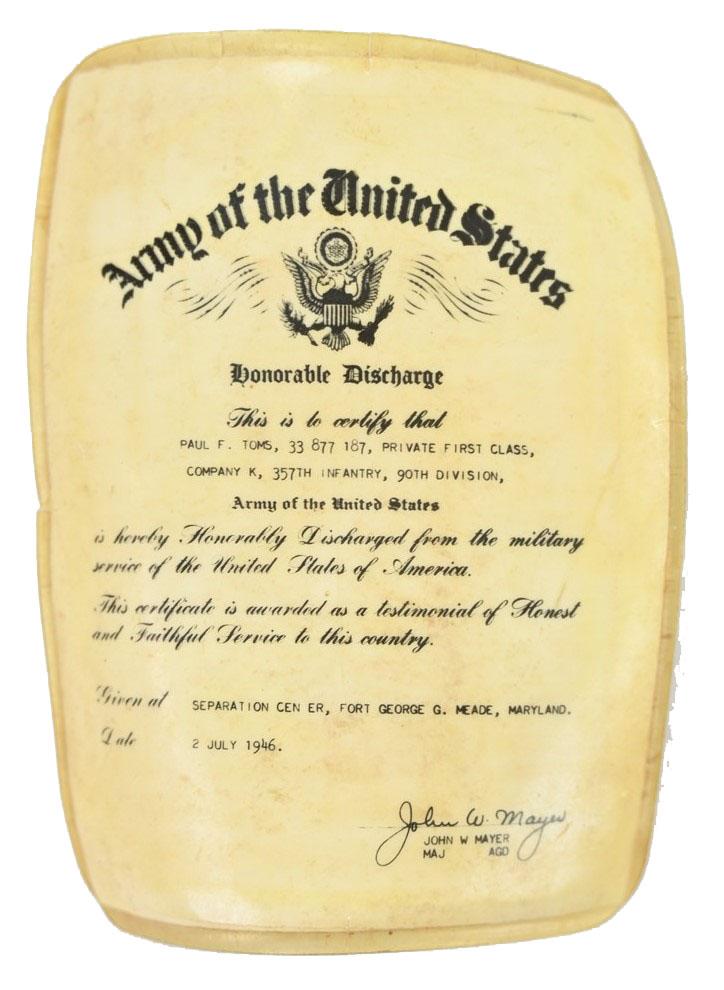 Army of the United States
Honorable Discharge
This is to certify that
PAUL F. TOMS, 33 877 187, PRIVATE FIRST CLASS,
COMPANY K, 357TH INFANTRY, 90TH DIVISION,
Army of the United States
is hereby Honorably Discharged from the military
service of the United States of America.
This certificate is awarded as a testimonial of Honest
and Faithful Service to this country.
Given at SEPARATION CEN ER, FORT GEORGE G. MEADE, MARYLAND.
Date 2 JULY 1946.
John W. Mayer
JOHN W MAYER
MAJ AGD